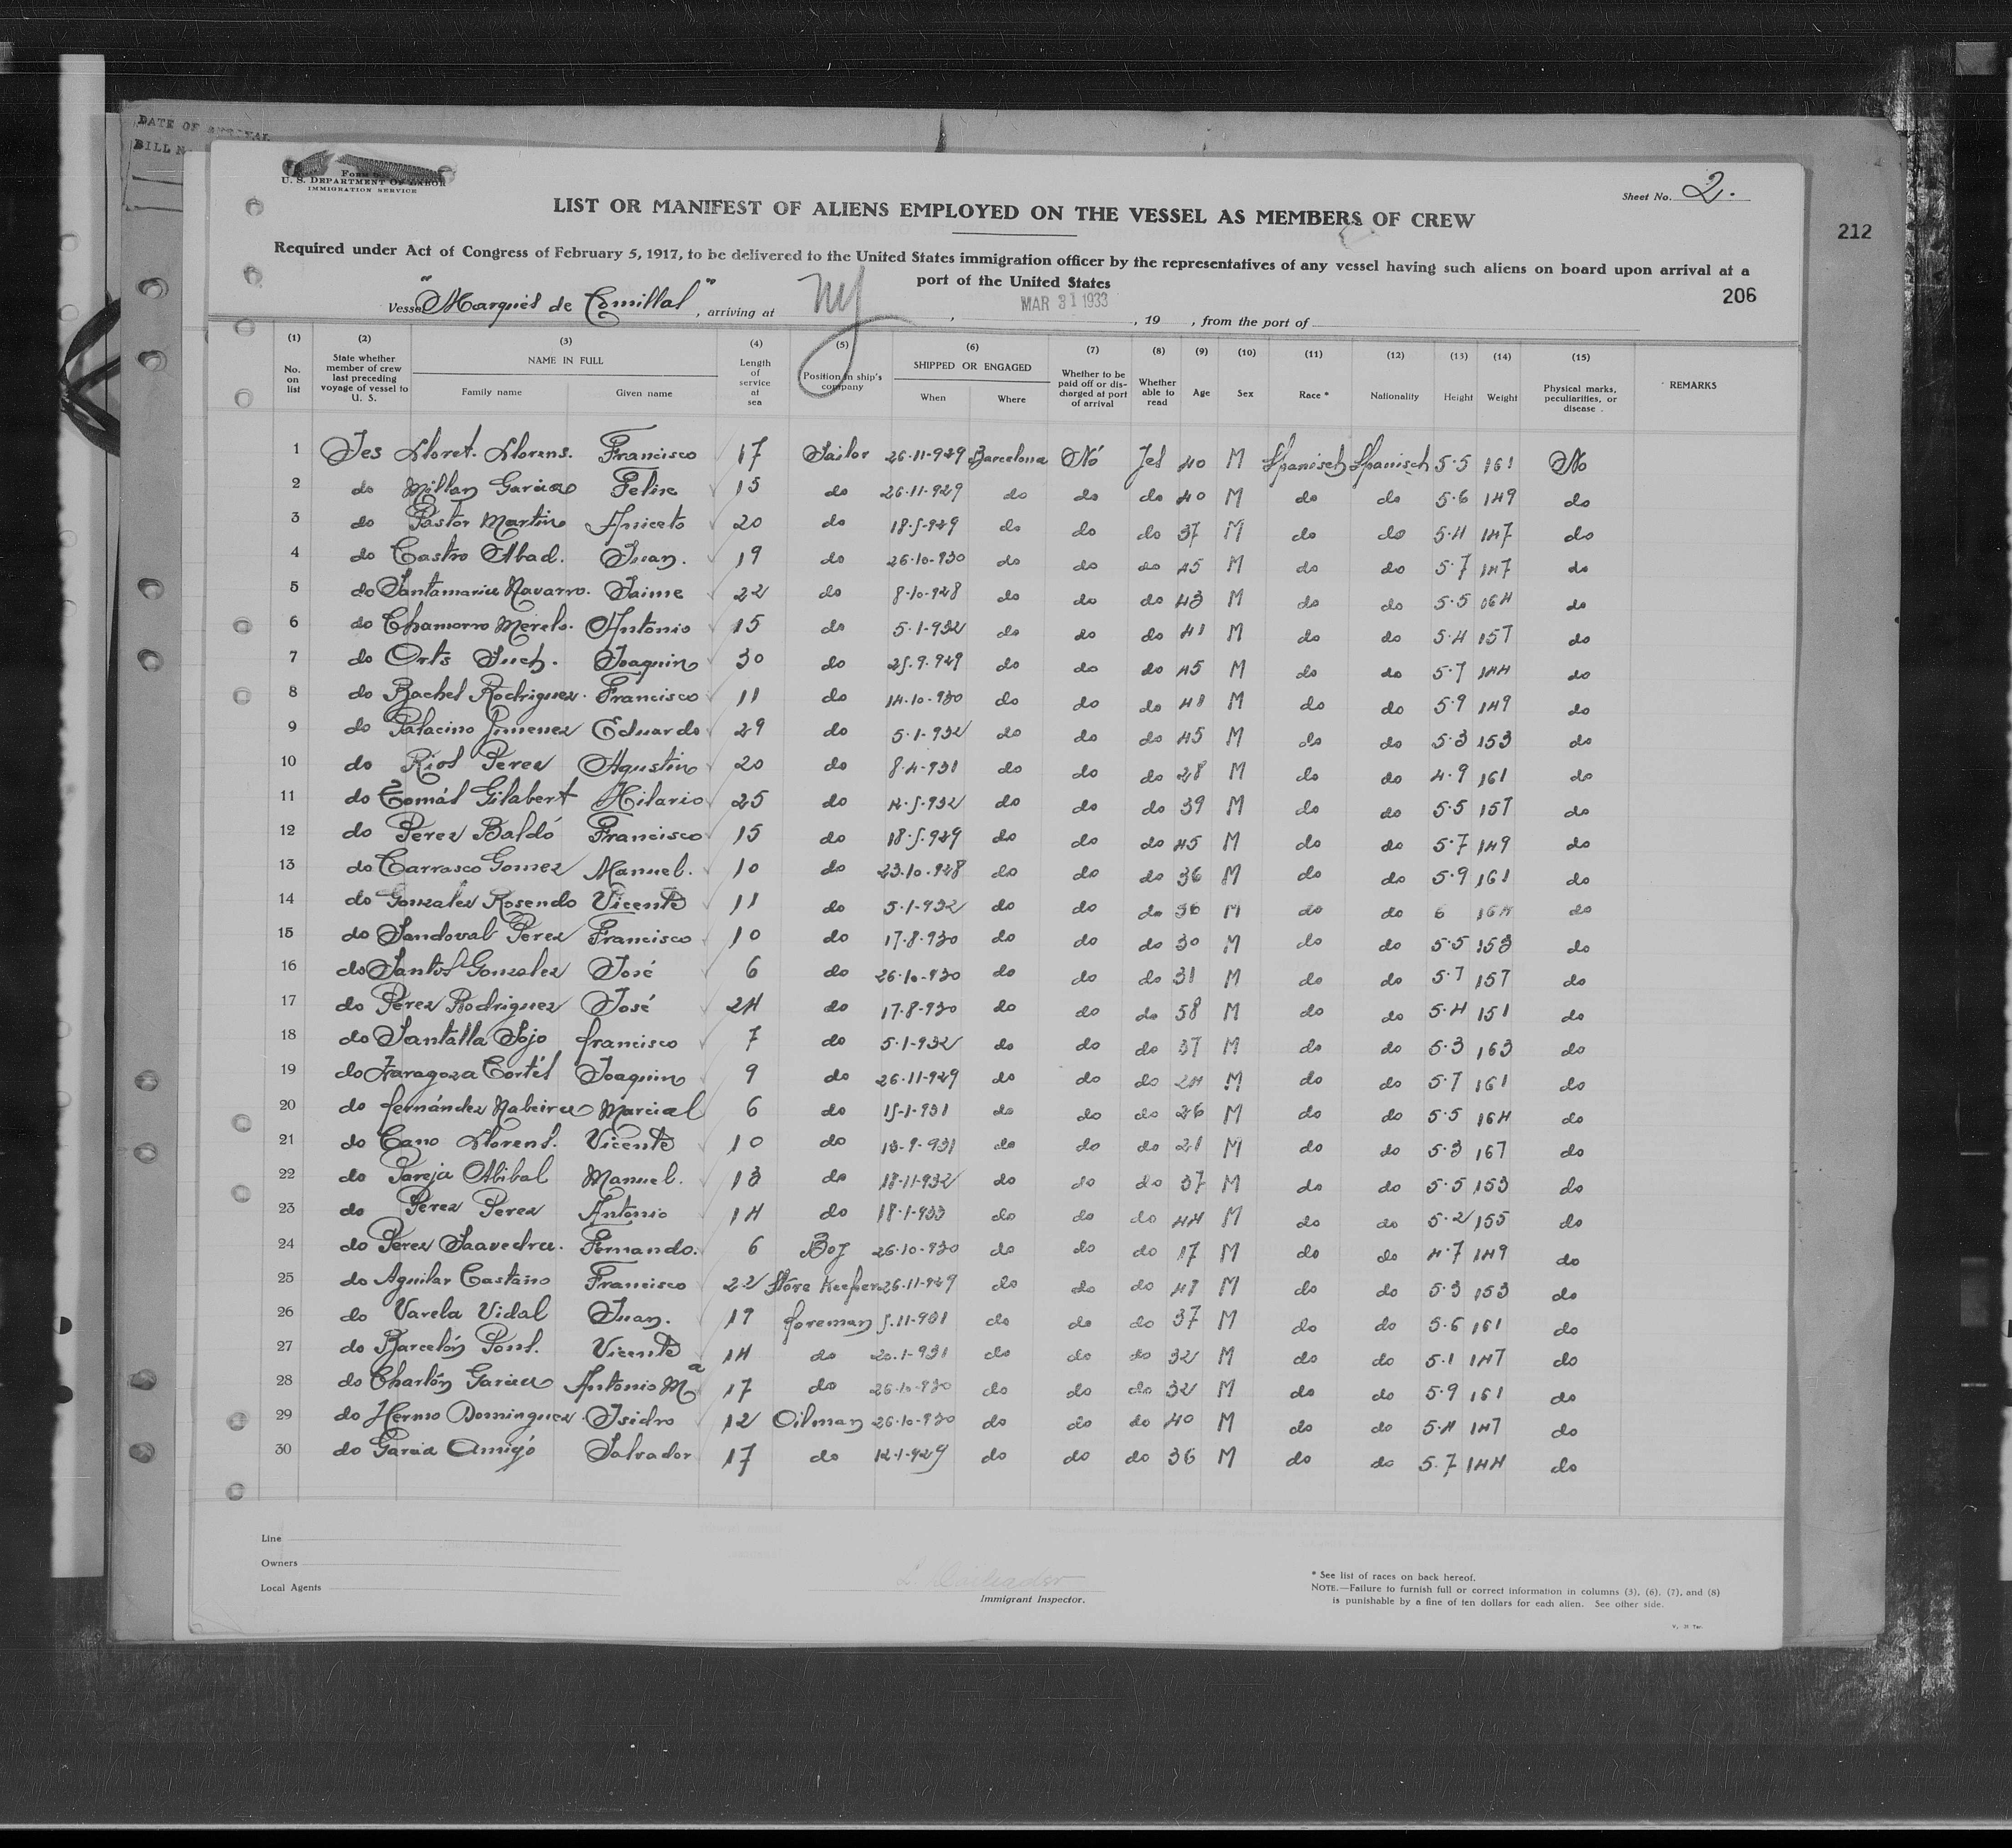 DATE OF ARRIVAL
BILL N
U. S. DEPARTMENT OF LABOR
IMMIGRATION SERVICE
Sheet No. 2.
LIST OR MANIFEST OF ALIENS EMPLOYED ON THE VESSEL AS MEMBERS OF CREW
212
Required under Act of Congress of February 5, 1917, to be delivered to the United States immigration officer by the representatives of any vessel having such aliens on board upon arrival at a
port of the United States
206
Vessel "Marqués de Comillas", arriving at NY, MAR 31 1933, 19 , from the port of
(1) (2) (3) (4) (5) (6) (7) (8) (9) (10) (11) (12) (13) (14) (15)
No. on list State whether member of crew last preceding voyage of vessel to U. S. NAME IN FULL Family name Given name Length of service at sea Position in ship's company SHIPPED OR ENGAGED When Where Whether to be paid off or discharged at port of arrival Whether able to read Age Sex Race * Nationality Height Weight Physical marks, peculiarities, or disease REMARKS
1 Yes Lloret Llorens. Francisco 17 Sailor 26-11-929 Barcelona Nó Yes 40 M Spanisch Spanisch 5-5 161 No
2 do Millan Garcia Felix 15 do 26-11-929 do do do 40 M do do 5-6 149 do
3 do Pastor Martin Aniceto 20 do 18-5-929 do do do 37 M do do 5-4 147 do
4 do Castro Abad. Juan. 19 do 26-10-930 do do do 45 M do do 5-7 147 do
5 do Santamaria Navarro. Jaime 22 do 8-10-928 do do do 43 M do do 5-5 064 do
6 do Chamorro Merelo. Antonio 15 do 5-1-932 do do do 41 M do do 5-4 157 do
7 do Orts Such. Joaquin 30 do 25-9-929 do do do 45 M do do 5-7 144 do
8 do Bachel Rodriguez. Francisco 11 do 14-10-930 do do do 41 M do do 5-9 149 do
9 do Palacino Jimenez Eduardo 29 do 5-1-932 do do do 45 M do do 5-3 153 do
10 do Rios Perez Agustin 20 do 8-4-931 do do do 28 M do do 4-9 161 do
11 do Tomás Gilabert Hilario 25 do 12-5-932 do do do 39 M do do 5-5 157 do
12 do Perez Baldó Francisco 15 do 18-5-929 do do do 45 M do do 5-7 149 do
13 do Carrasco Gomez Manuel. 10 do 23-10-928 do do do 36 M do do 5-9 161 do
14 do Gonzalez Rosendo Vicente 11 do 5-1-932 do do do 36 M do do 6 164 do
15 do Sandoval Perez Francisco 10 do 17-8-930 do do do 30 M do do 5-5 153 do
16 do Santos Gonzalez José 6 do 26-10-930 do do do 31 M do do 5-7 157 do
17 do Perez Rodriguez José 24 do 17-8-930 do do do 58 M do do 5-4 151 do
18 do Santalla Sojo francisco 7 do 5-1-932 do do do 37 M do do 5-3 163 do
19 do Zaragoza Cortés Joaquin 9 do 26-11-929 do do do 24 M do do 5-7 161 do
20 do fernández Nabeira Marcial 6 do 15-1-931 do do do 26 M do do 5-5 164 do
21 do Cano Llorens. Vicente 10 do 13-9-931 do do do 21 M do do 5-3 167 do
22 do Pareja Abibal Manuel. 13 do 18-11-932 do do do 37 M do do 5-5 153 do
23 do Perez Perez Antonio 14 do 18-1-933 do do do 44 M do do 5-2 155 do
24 do Perez Saavedra. Fernando. 6 Boy 26-10-930 do do do 17 M do do 4-7 149 do
25 do Aguilar Castaño Francisco 22 Store Keeper 26-11-929 do do do 41 M do do 5-3 153 do
26 do Varela Vidal Juan. 17 foreman 5-11-931 do do do 37 M do do 5-6 161 do
27 do Barcelón Pons. Vicente 14 do 20-1-931 do do do 32 M do do 5-1 147 do
28 do Charlón Garcia Antonio Mª 17 do 26-10-930 do do do 32 M do do 5-9 161 do
29 do Hermo Dominguez Isidro 12 Oilman 26-10-930 do do do 40 M do do 5-4 147 do
30 do Garcia Amigó Salvador 17 do 12-1-929 do do do 36 M do do 5-7 144 do
Line
Owners
Local Agents
Immigrant Inspector.
* See list of races on back hereof.
NOTE.—Failure to furnish full or correct information in columns (3), (6), (7), and (8)
is punishable by a fine of ten dollars for each alien. See other side.